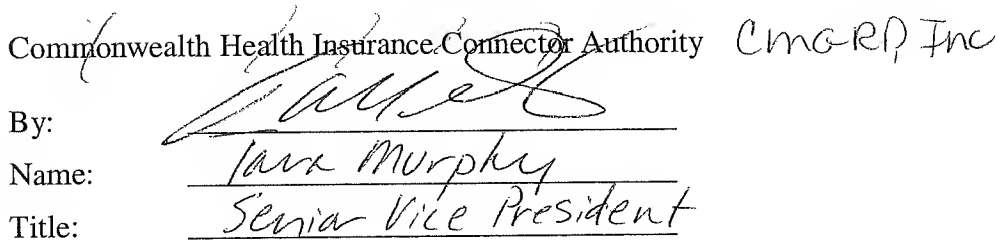 Commonwealth Health Insurance Connector Authority CMGRP, Inc
By:
Name: Tara Murphy
Title: Senior Vice President